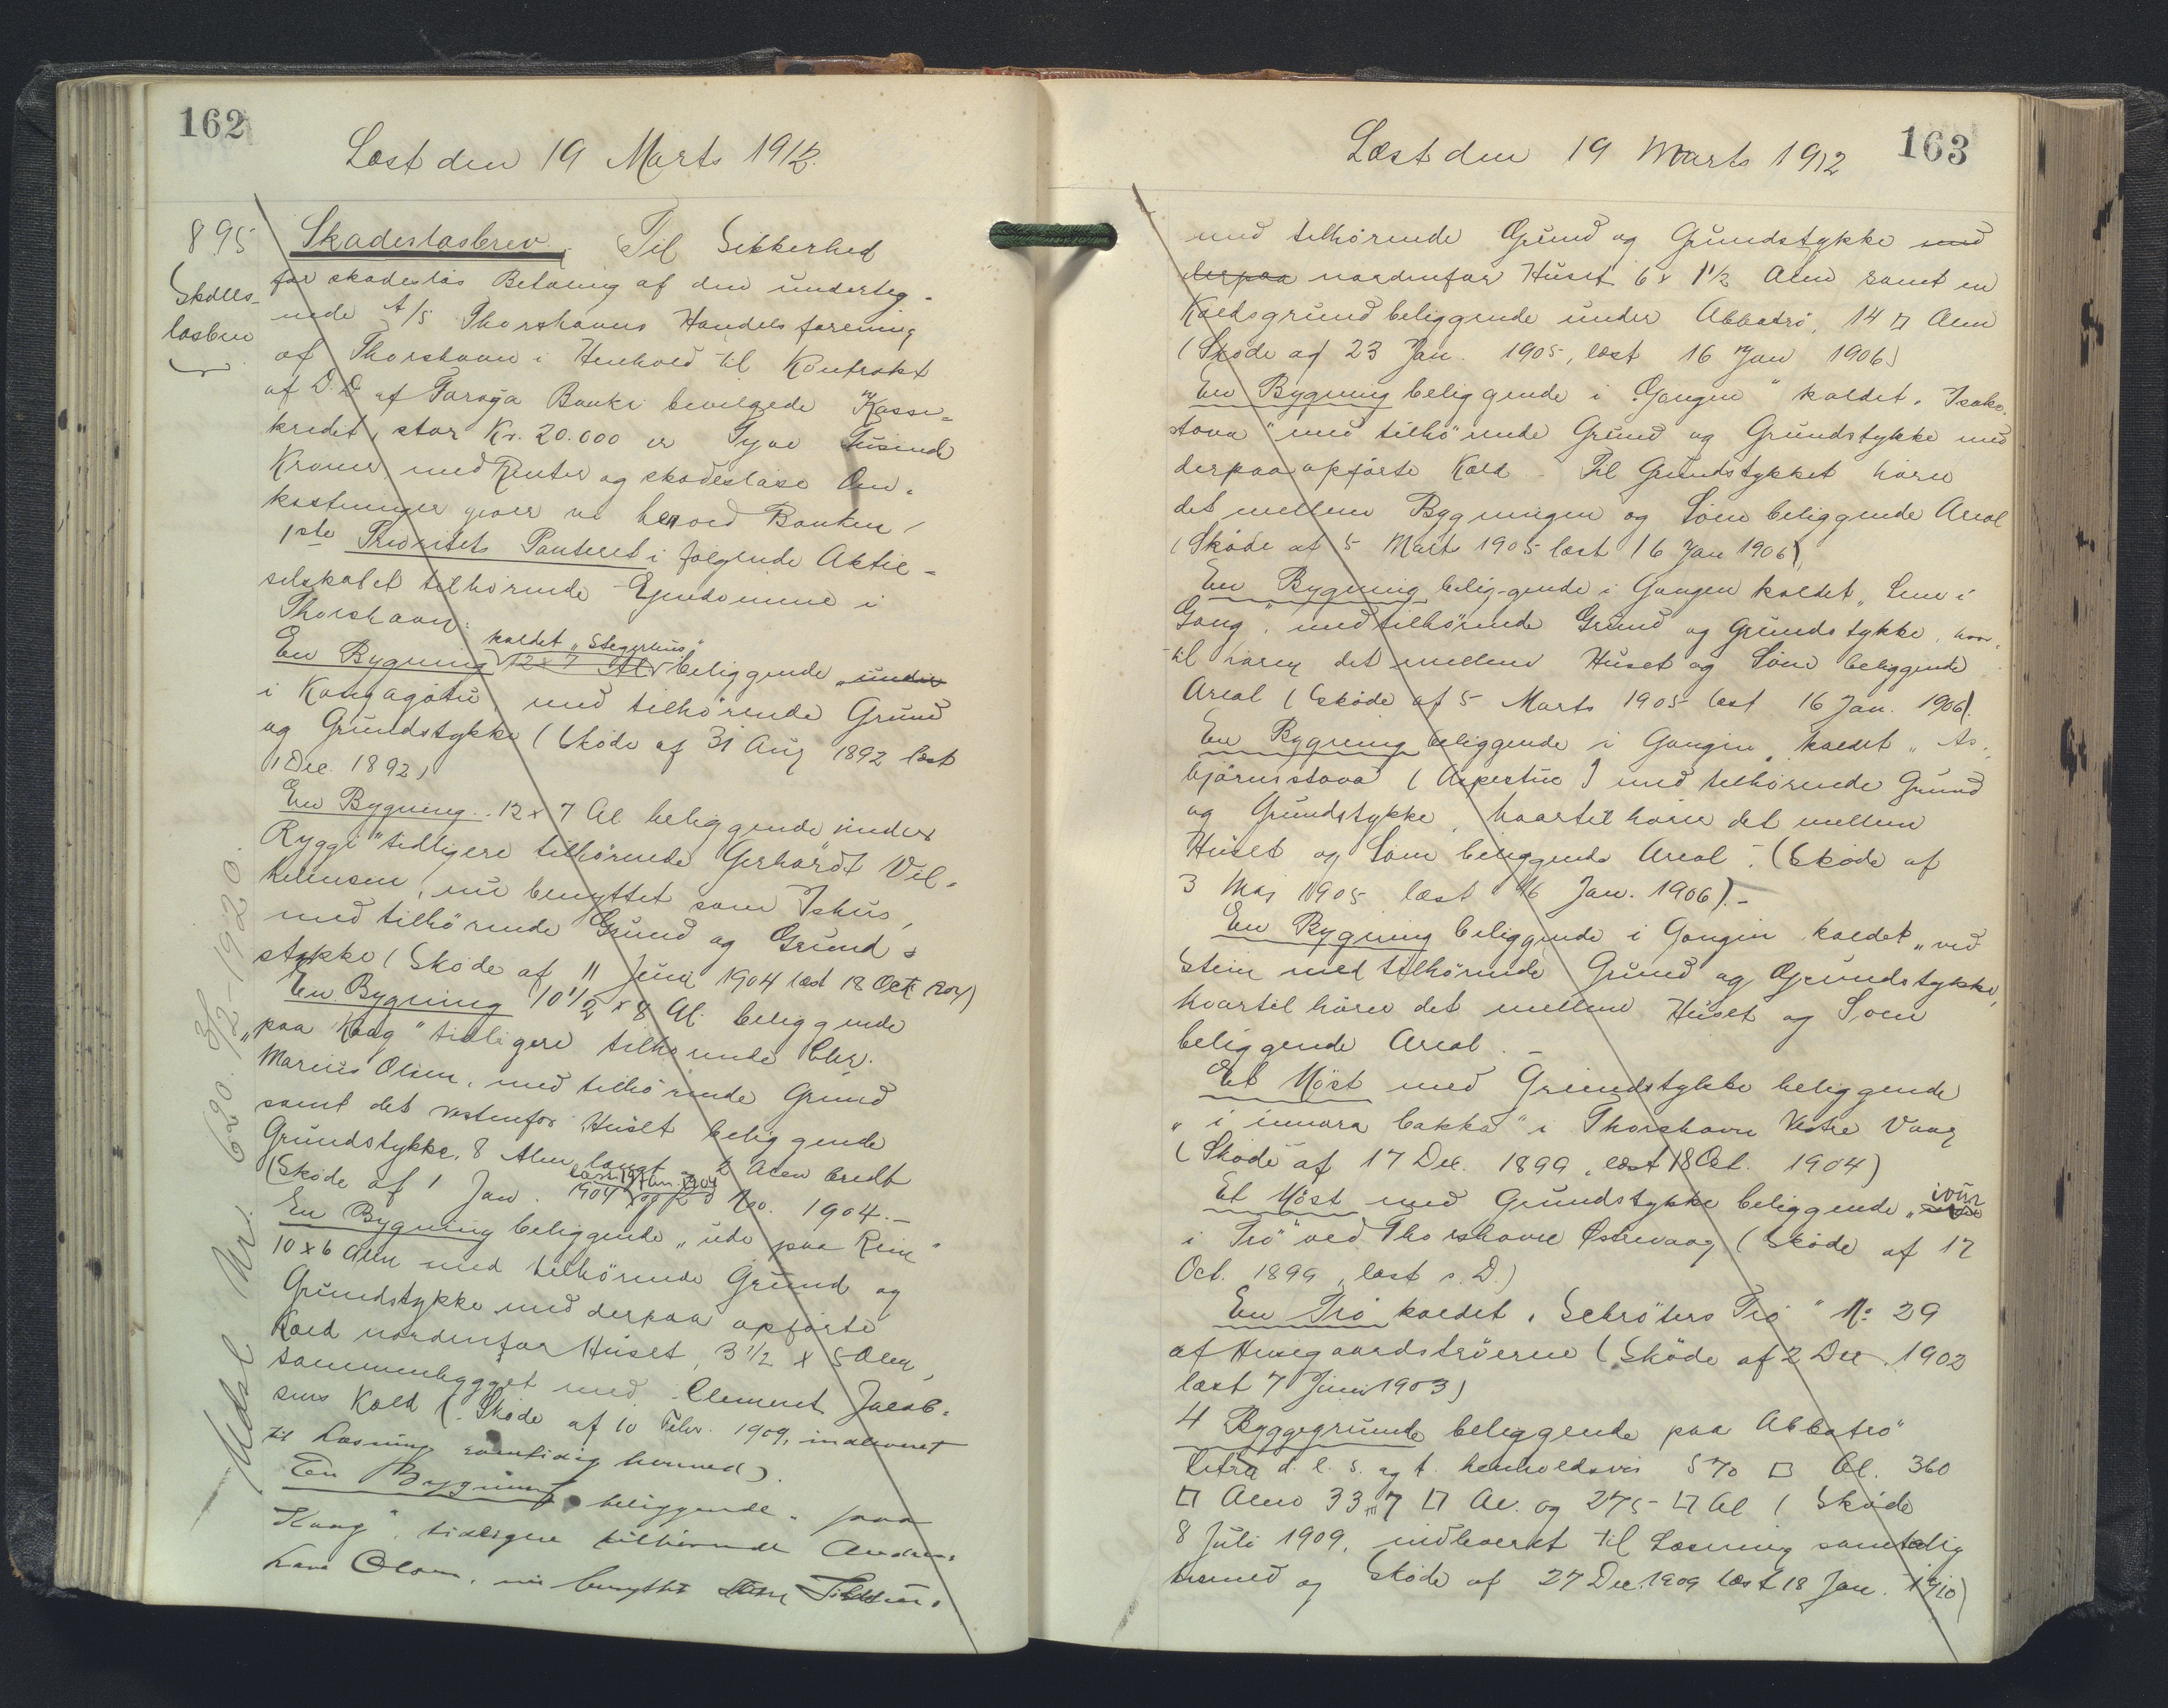 162
Læst den 19 Marts 1912.
895
Skades-
løsbrev
Skadesløsbrev. Til Sikkerhed
for skadesløs Betaling af den underteg-
nede A/S Thorshavns Handelsforening
af Thorshavn i Henhold til Kontrakt
af D.D. af Færøya Banki bevilgede Kasse-
kredit, stor Kr. 20.000 er Tyve Tusinde
Kroner, med Renter og skadesløse Om-
kostninger giver vi herved Banken
1ste Prioritets Panteret i følgende Aktie-
selskabet tilhørende Ejendomme i
Thorshavn:
kaldet „Stegarhus"
En Bygning 12 x 7 Al beliggende „under
i Kongagøtu, med tilhørende Grund
og Grundstykke (Skøde af 31 Aug 1892 læst
1 Dec. 1892)
En Bygning 12 x 7 Al beliggende „under
Ryggi" tidligere tilhørende Gerhardt Vil-
helmsen, nu benyttet som Ishus,
med tilhørende Grund og Grund-
stykke (Skøde af 11 Juni 1904 læst 18 Oct 1904)
En Bygning 10 1/2 x 8 Al. beliggende
„paa Kaag" tidligere tilhørende Chr.
Marius Olsen, med tilhørende Grund
samt det vestenfor Huset beliggende
Grundstykke, 8 Alen langt og 2 Alen bredt
(Skøde af 1 Jan. 1904 og 2 Nov. 1904.-
læst 19 Jan. 1904
En Bygning beliggende „ude paa Rein"
10 x 6 Alen med tilhørende Grund og
Grundstykke med derpaa opførte
Kæld nordenfor Huset, 3 1/2 x 5 Alen,
sammenbygget med Clement Jacob-
sens Kæld (Skøde af 10 Febr. 1909, indleveret
til Læsning samtidig hermed).
En Bygning beliggende „paa
Kaag", tidligere tilhørende Andreas
Olsen, nu benyttet
Udsl Nr. 690. 3/2-1920.
163
Læst den 19 Marts 1912
med tilhørende Grund og Grundstykke med
derpaa nordenfor Huset 6 x 1 1/2 Alen samt en
Kældsgrund beliggende under Abbatrø, 14 □ Alen
(Skøde af 23 Jan. 1905, læst 16 Jan 1906)
En Bygning beliggende i „Gongen" kaldet „Isaks-
stova" med tilhørende Grund og Grundstykke med
derpaa opførte Kæld - Til Grundstykket hører
det mellem Bygningen og Søen beliggende Areal
(Skøde af 5 Marts 1905 læst 16 Jan 1906)
En Bygning beliggende i Gongen kaldet „Lern i
Gong", med tilhørende Grund og Grundstykke, hvor-
til hører det mellem Huset og Søen beliggende
Areal (Skøde af 5 Marts 1905 læst 16 Jan. 1906).
En Bygning beliggende i Gongin, kaldet „As-
bjørnsstova (Aspestue) med tilhørende Grund
og Grundstykke, hvortil hører det mellem
Huset og Søen beliggende Areal. (Skøde af
3 Maj 1905 læst 16 Jan. 1906).-
En Bygning beliggende i Gongin kaldet „ved
Stein med tilhørende Grund og Grundstykke,
hvortil hører det mellem Huset og Søen
beliggende Areal. -
Et Nöst med Grundstykke beliggende
„i innara bakka" i Thorshavn Vestre Vaag
(Skøde af 17 Dec. 1899, læst 18 Oct. 1904)
Et Nöst med Grundstykke beliggende „ivur
i Trø" ved Thorshavn Østrevaag (Skøde af 17
Oct. 1899, læst s. D.)
En Trø kaldet „Schrøters Trø" No 29
af Husegaardstrøerne (Skøde af 2 Dec. 1902
læst 7 Juni 1903)
4 Byggegrunde beliggende paa Abbatrø"
Litra d. l. s. og t. henholdsvis 570 □ Al. 360
□ Alen 337 □ Al. og 275 □ Al (Skøde
8 Juli 1909, indleveret til Læsning samtidig
hermed og Skøde af 27 Dec. 1909 læst 18 Jan. 1910)